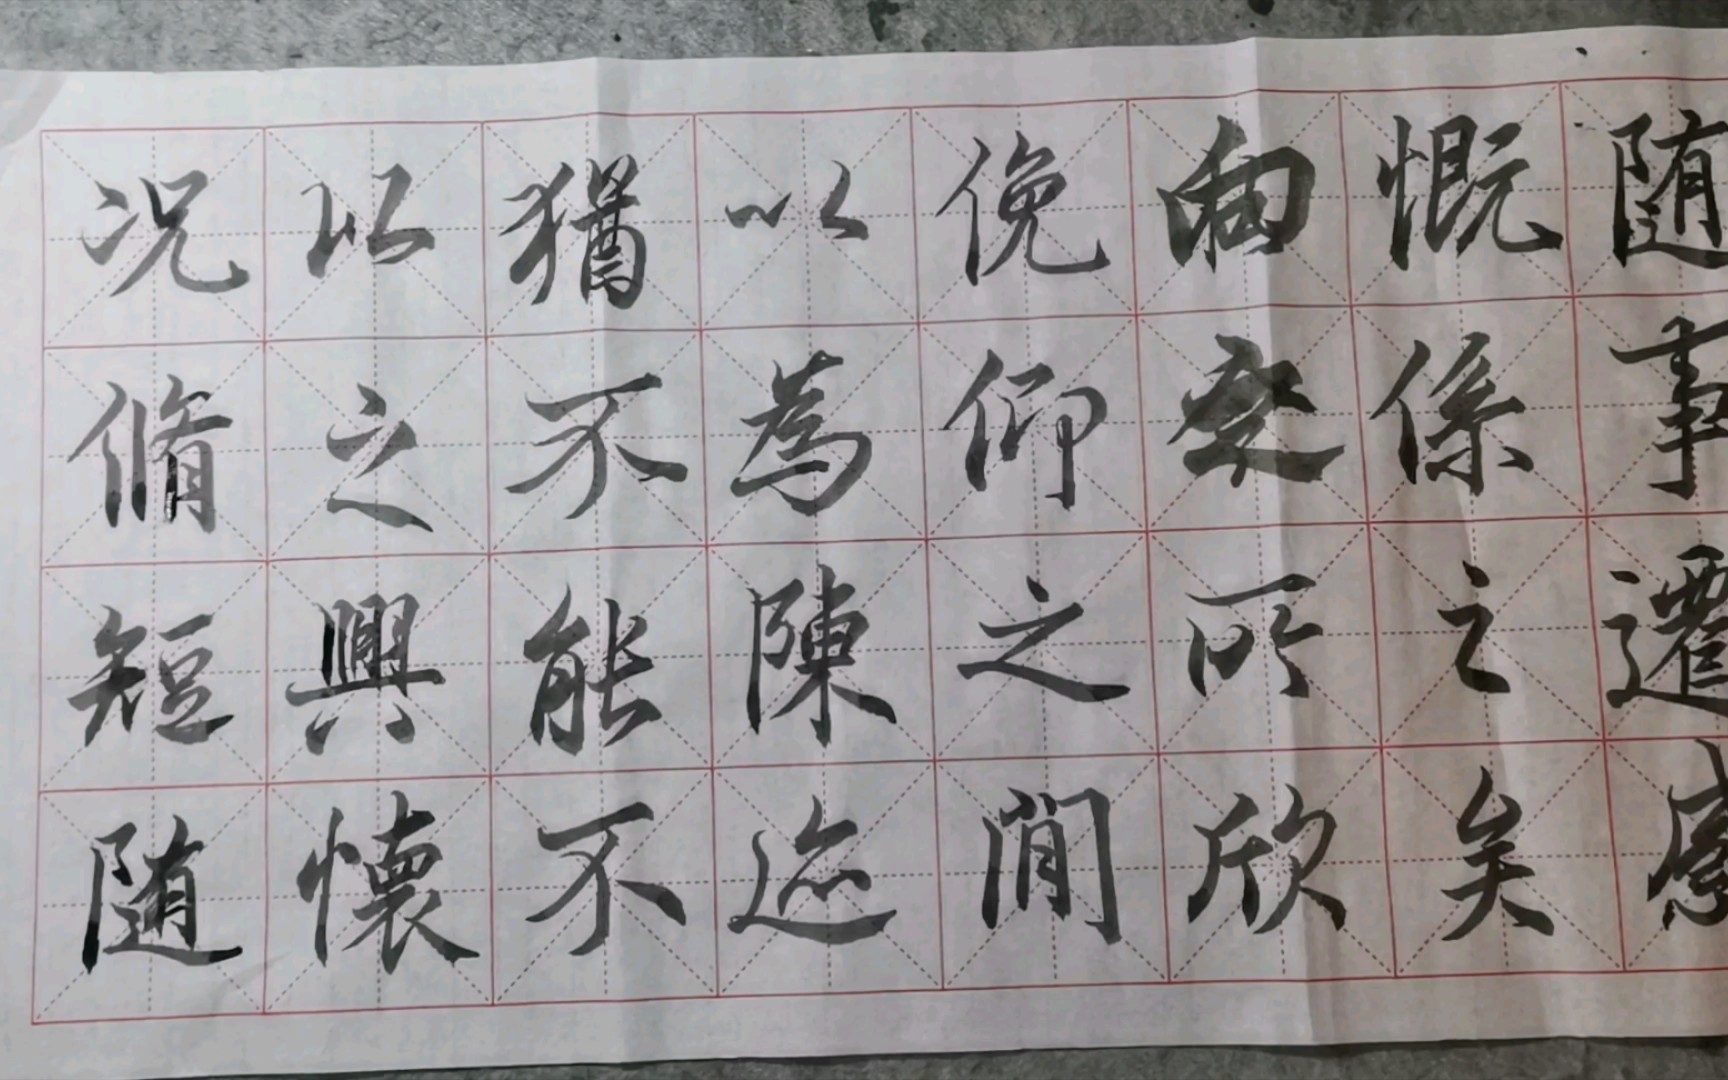 随事遷感
慨係之矣
向之所欣
俛仰之閒
以為陳迹
猶不能不
以之興懷
况脩短随